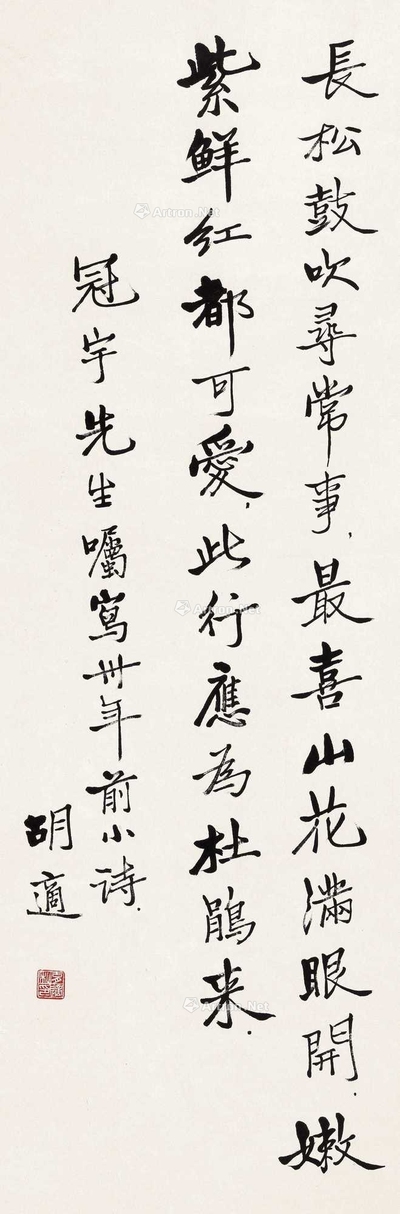 長松鼓吹尋常事，最喜山花滿眼開．嫩
紫鮮紅都可愛，此行應為杜鵑来．
冠宇先生囑寫卅年前小詩．
胡適
Artron.Net
Artron.Net
Artron.Net